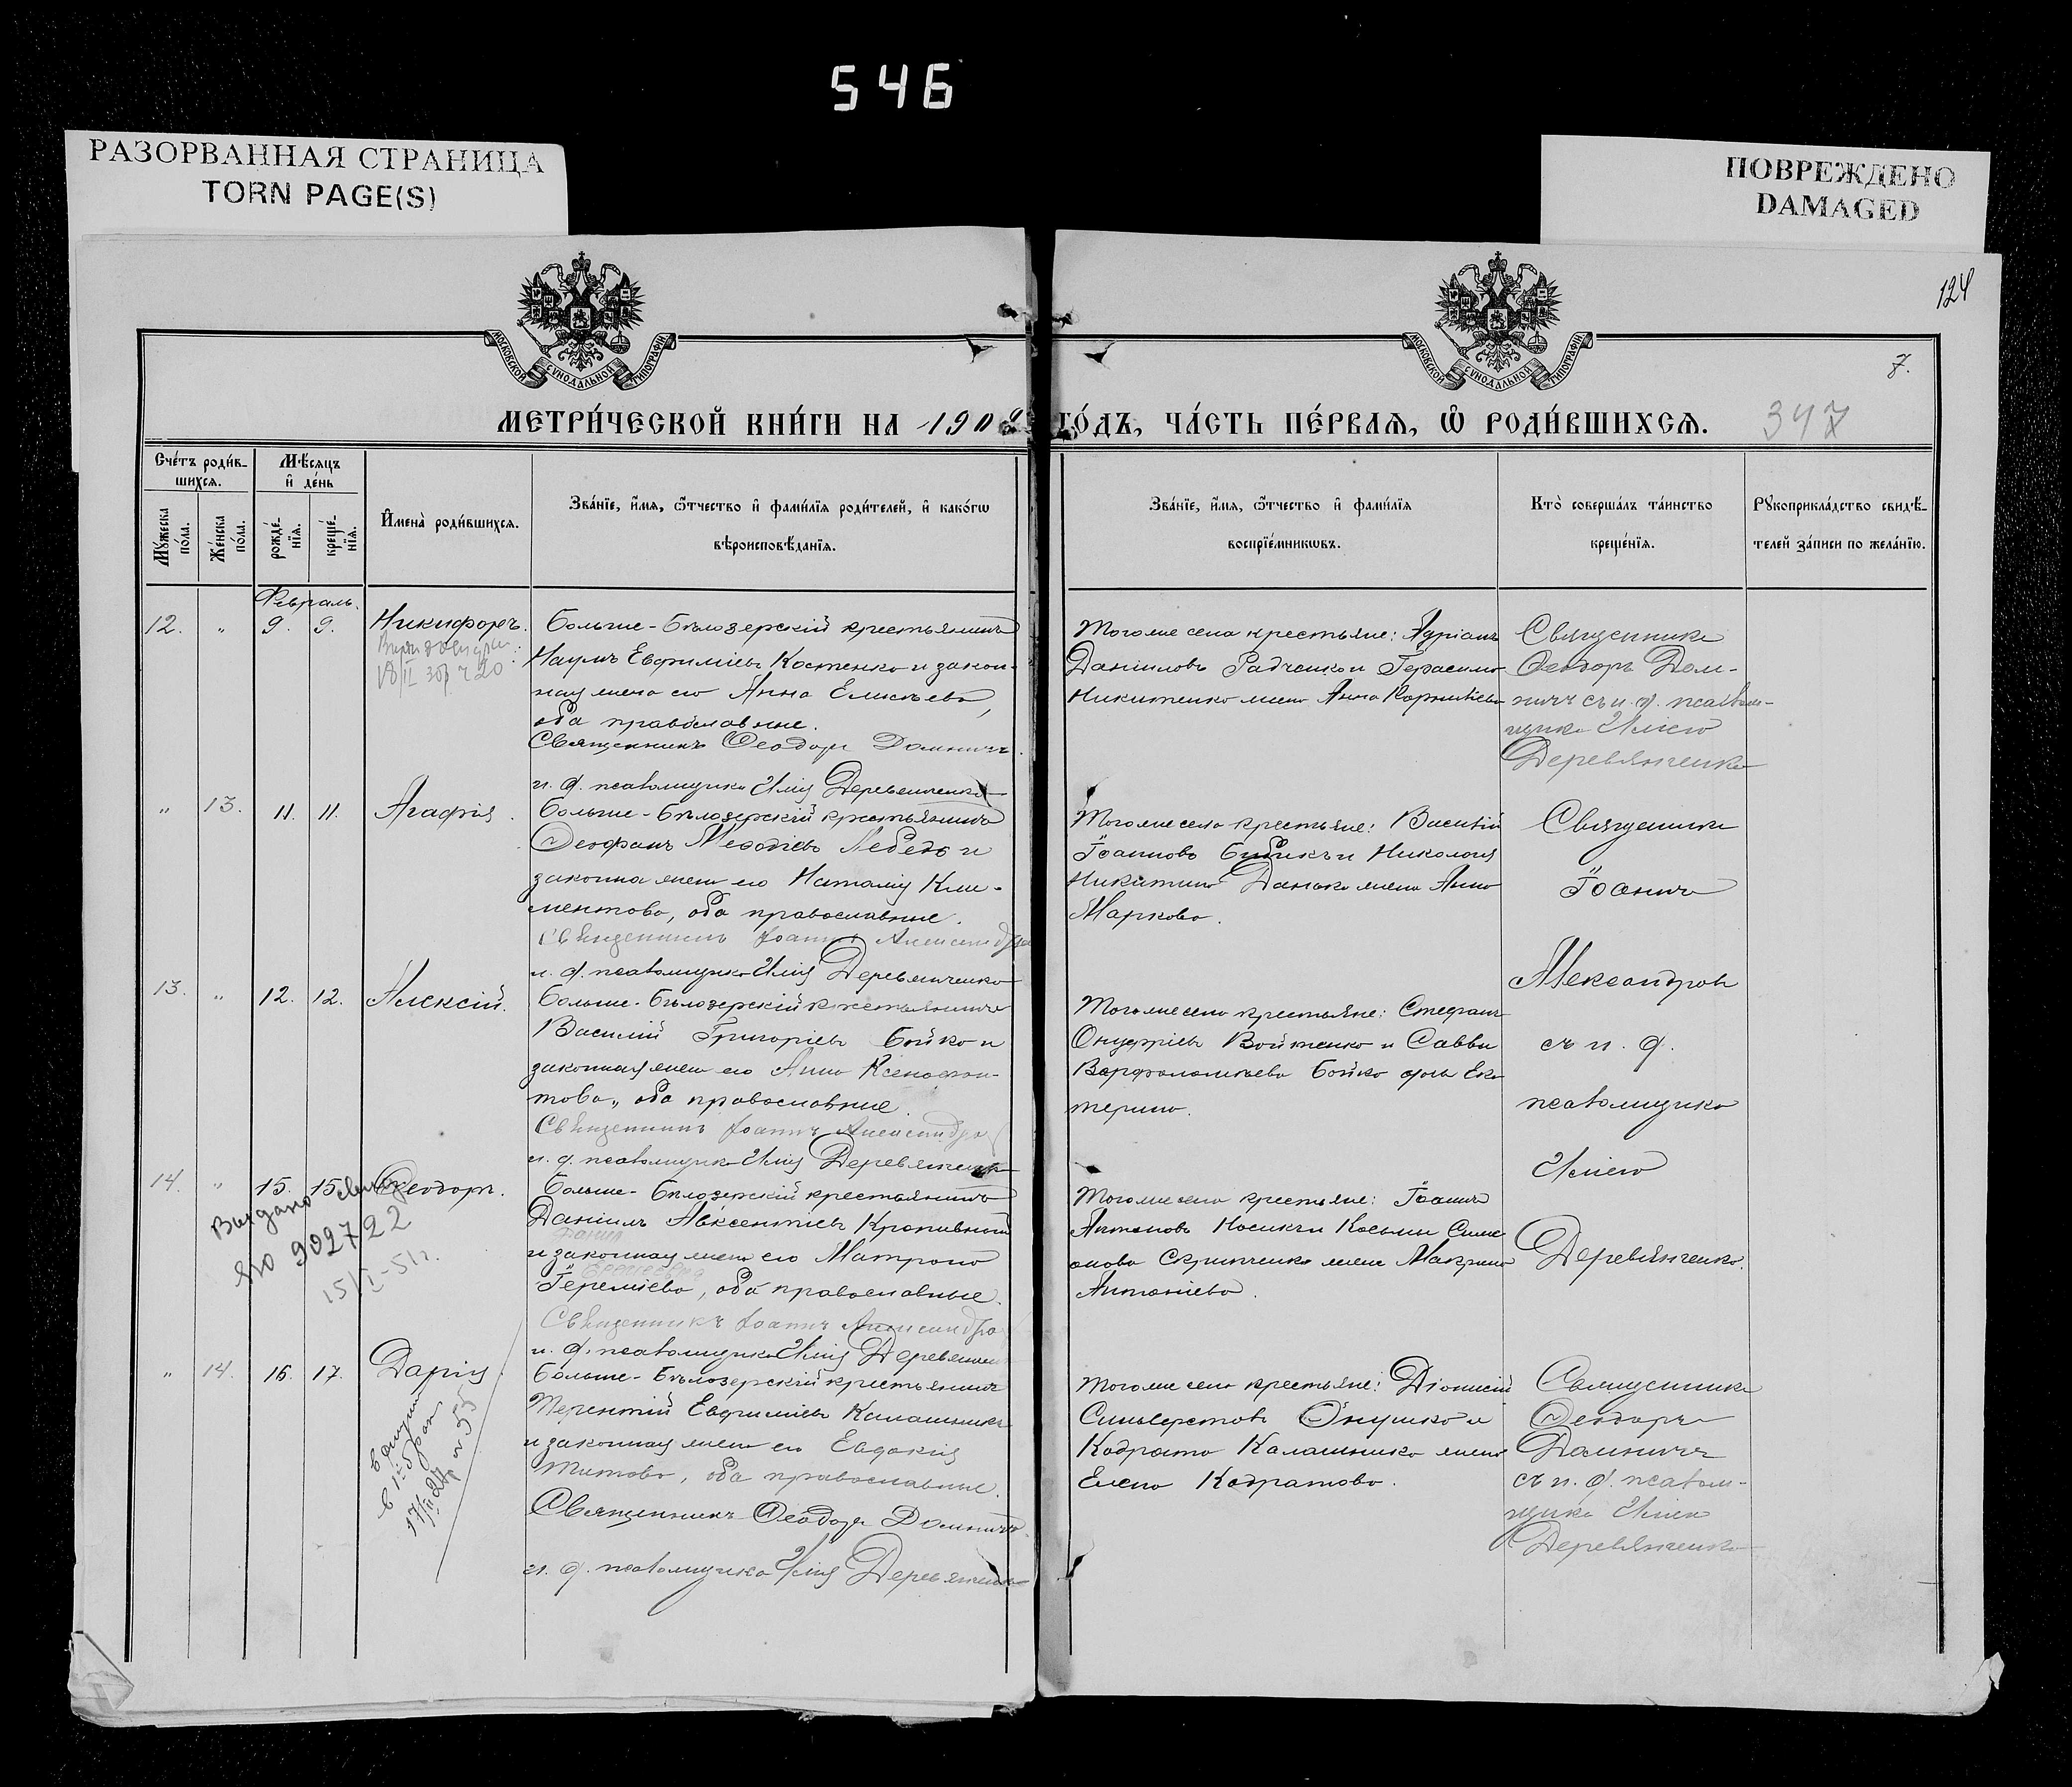 546
РАЗОРВАННАЯ СТРАНИЦА
TORN PAGE(S)
ПОВРЕЖДЕНО
DAMAGED
124
7.
МОСКОВСКОЙ СУНОДАЛЬНОЙ ТИПОГРАФІИ
МОСКОВСКОЙ СУНОДАЛЬНОЙ ТИПОГРАФІИ
МЕТРИ́ЧЕСКОЙ КНИ́ГИ НА 1902 ГО́ДЪ, ЧА́СТЬ ПЕ́РВАѦ, Ѡ РОДИ́ВШИХСѦ.
347
Сче́тъ роди́в-
шихсѧ.
Мꙋ́жеска по́ла.
Же́нска по́ла.
Мѣ́сѧцъ
и҆ де́нь
рожде́-
нїѧ.
креще́-
нїѧ.
И҆мена̀ роди́вшихсѧ.
Зва́нїе, и҆́мѧ, ѻ҆́тчество и҆ фами́лїѧ роди́телей, и҆ како́гѡ
вѣроисповѣ́данїѧ.
Зва́нїе, и҆́мѧ, ѻ҆́тчество и҆ фами́лїѧ
воспрїе́мникѡвъ.
Кто̀ соверша́лъ та́инство
креще́нїѧ.
Рꙋкоприкла́дство свидѣ́-
телей за́писи по жела́нїю.
Февраль.
12. " 9. 9. Никифоръ.
Больше-Бѣлозерскій крестьянинъ
Наумъ Евфиміевъ Костенко и закон-
ная жена его Анна Елисѣева,
оба православные.
Священникъ Ѳеодоръ Домничъ.
и. д. псаломщика Илія Деревянченко
Тогоже села крестьяне: Адріанъ
Даніиловъ Радченко и Герасима
Никитенко жена Анна Корнилѣева
Священникъ
Ѳеодоръ Дом-
ничъ съ и. д. псалом-
щика Иліею
Деревянченко
" 13. 11. 11. Агафія.
Больше-Бѣлозерскій крестьянинъ
Ѳеофанъ Меѳодіевъ Лебедь и
законна жена его Наталія Кли-
ментова, оба православные.
Священникъ Іоаннъ Александров
и. д. псаломщика Илія Деревянченко
Тогоже села крестьяне: Василій
Іоанновъ Бибикъ и Николая
Никитина Данько жена Анна
Маркова.
Священникъ
Іоаннъ
Александровъ
съ и. д.
псаломщика
Иліею
Деревянченко.
13. " 12. 12. Алексій.
Больше-Бѣлозерскій крестьянинъ
Василій Григоріевъ Бойко и
законная жена его Анна Ксенофон-
това, оба православные.
Священникъ Іоаннъ Александров
и. д. псаломщика Илія Деревянченко
Тогоже села крестьяне: Стефанъ
Онуфріевъ Войтенко и Саввы
Варфоломѣева Бойко дочь Ека-
терина.
14. " 15. 15. Ѳеодоръ.
Выдано свид
902722
15/I-51г.
Больше-Бѣлозерскій крестьянинъ
Даніилъ Авксентіевъ Кропивный
и законная жена его Матрона
Іереміева, оба православные.
Священникъ Іоаннъ Александров
и. д. псаломщика Илія Деревянченко
Тогоже села крестьяне: Іоаннъ
Антоновъ Носикъ и Космы Симе-
онова Скрипченко жена Макрина
Антоніева.
" 14. 16. 17. Дарія.
Больше-Бѣлозерскій крестьянинъ
Терентій Евфиміевъ Калашникъ
и законная жена его Евдокія
Титова, оба православные.
Священникъ Ѳеодоръ Домничъ.
и. д. псаломщика Илія Деревянченко
Тогоже села крестьяне: Діонисій
Сильверстовъ Онушко и
Кодрата Калашника жена
Елена Кодратова.
Священникъ
Ѳеодоръ
Домничъ
съ и. д. псалом-
щика Иліею
Деревянченко